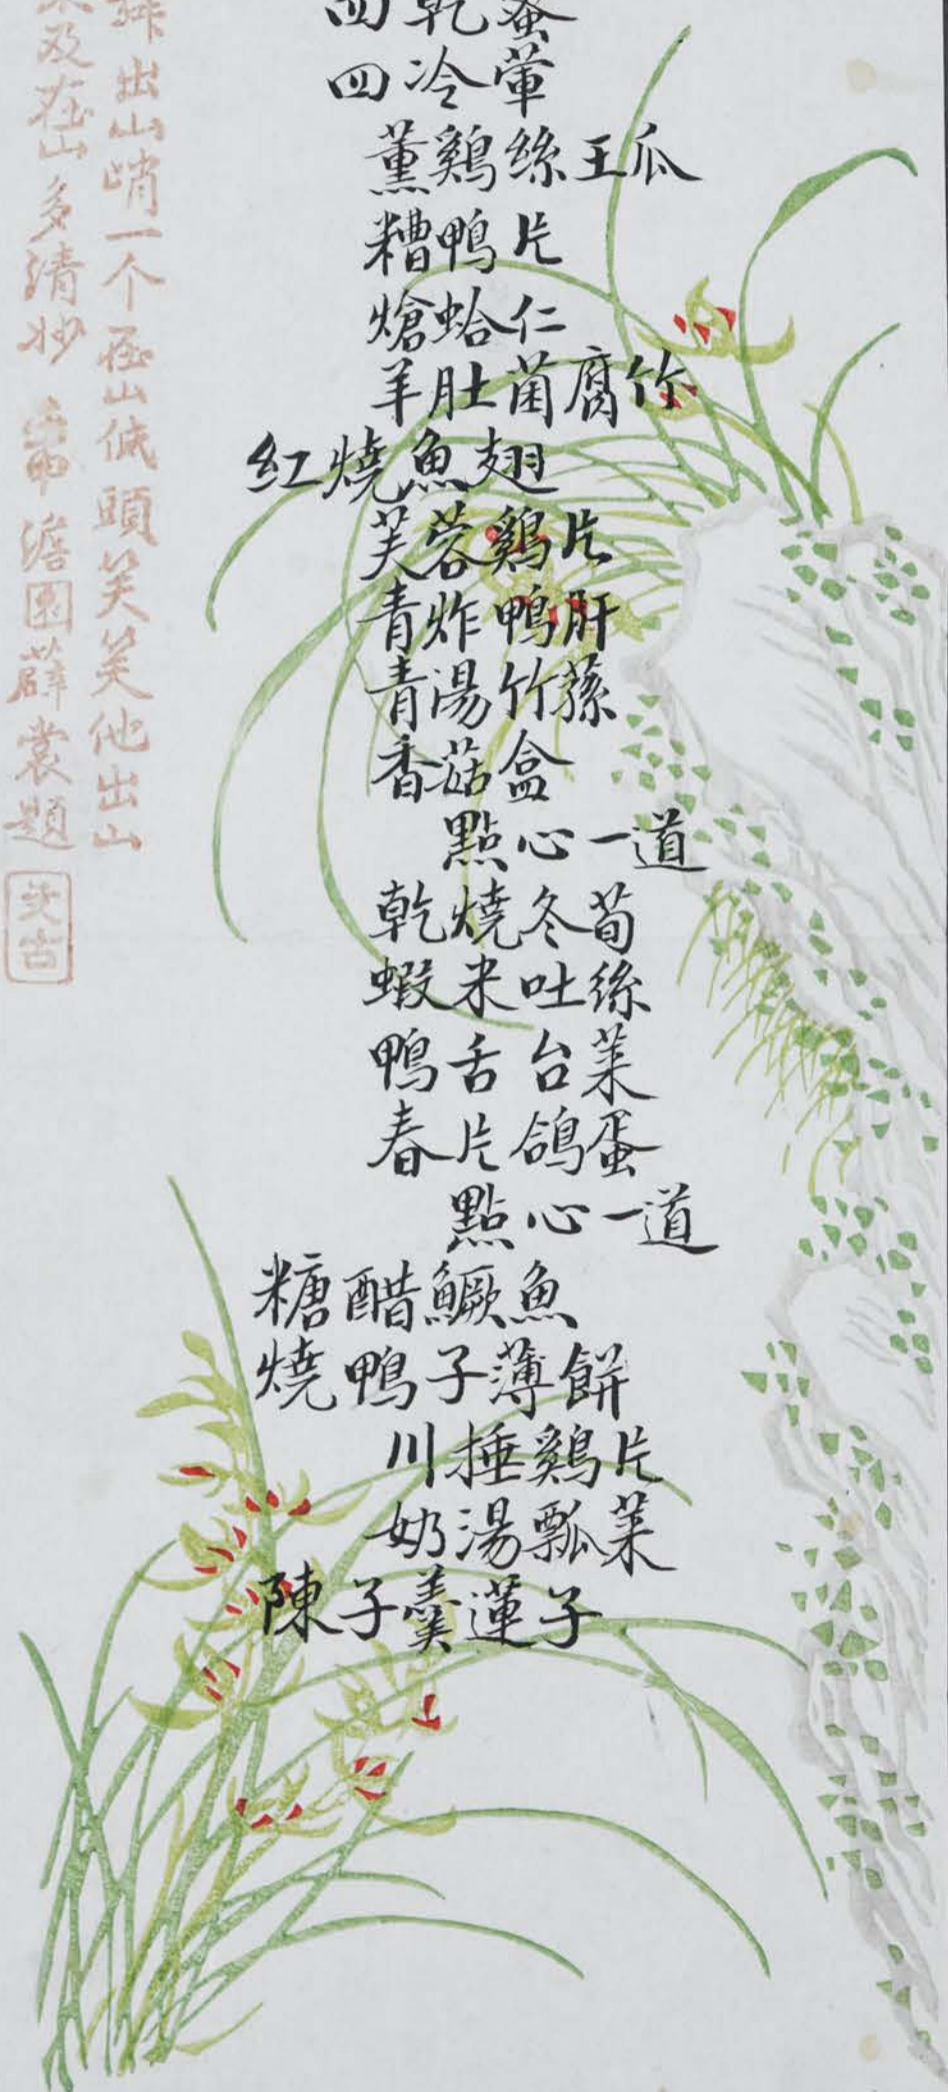 四乾
四冷葷
薰鷄絲王瓜
糟鴨片
熗蛤仁
羊肚菌腐竹
紅燒魚翅
芙蓉鷄片
青炸鴨肝
青湯竹蓀
香菇盒
點心一道
乾燒冬荀
蝦米吐絲
鴨舌台菜
春片鴿蛋
點心一道
糖醋鱖魚
燒鴨子薄餅
川捶鷄片
奶湯瓢菜
陳子羹蓮子
出山峭一个在山低頭笑笑他出山
及在山多清妙 申澹園薜裳題